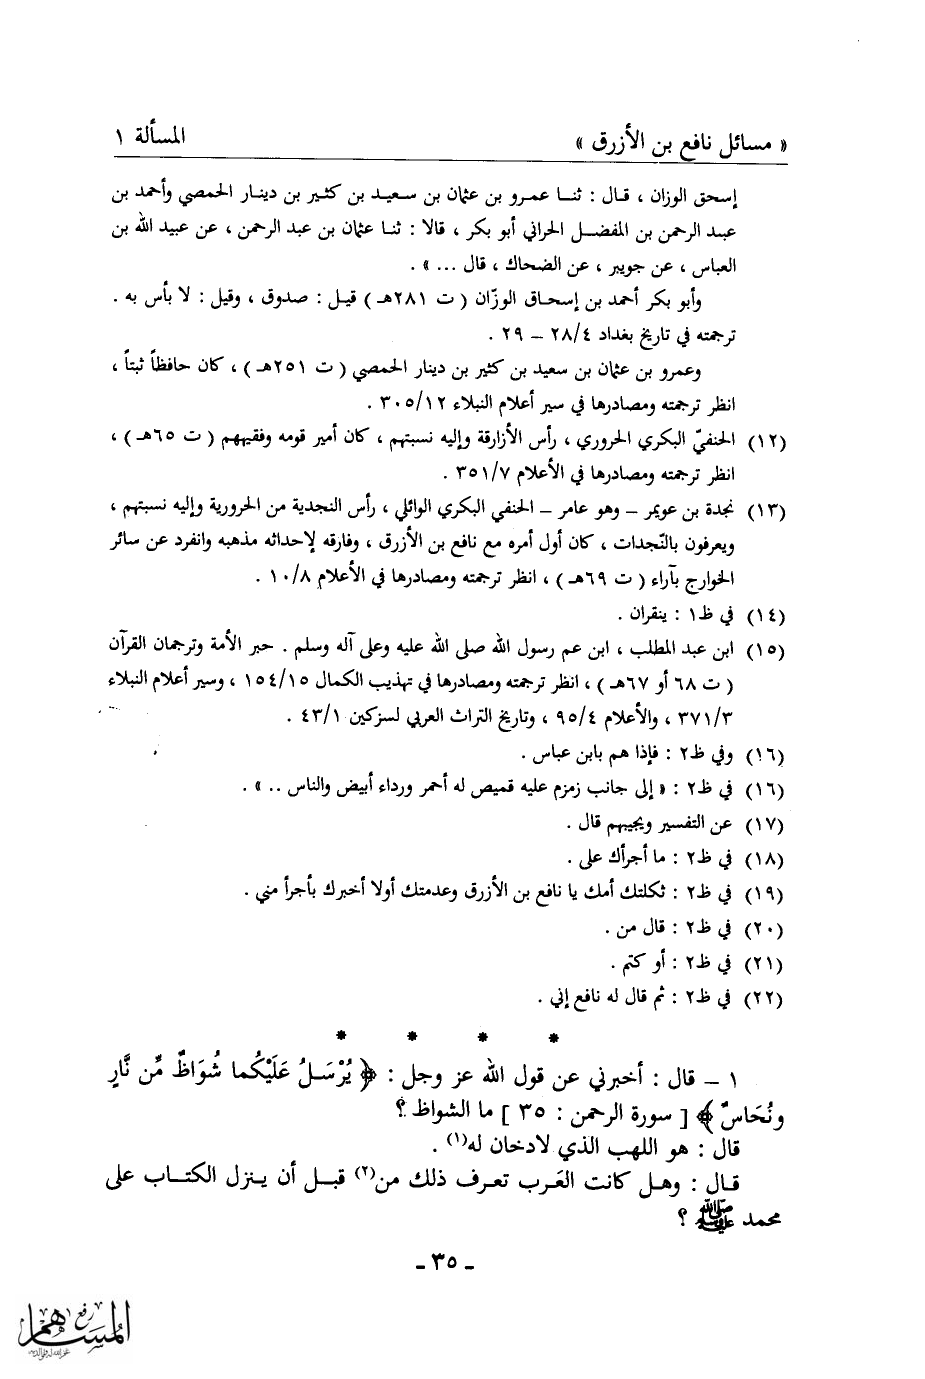 « مسائل نافع بن الأزرق » المسألة ١
إسحق الوزان ، قال : ثنا عمرو بن عثمان بن سعيد بن كثير بن دينار الحمصي وأحمد بن
عبد الرحمن بن المفضل الحراني أبو بكر ، قالا : ثنا عثمان بن عبد الرحمن ، عن عبيد الله بن
العباس ، عن جويبر ، عن الضحاك ، قال ... » .
وأبو بكر أحمد بن إسحاق الوزّان ( ت ٢٨١هـ ) قيل : صدوق ، وقيل : لا بأس به .
ترجمته في تاريخ بغداد ٢٨/٤ – ٢٩ .
وعمرو بن عثمان بن سعيد بن كثير بن دينار الحمصي ( ت ٢٥١هـ ) ، كان حافظاً ثبتاً ،
انظر ترجمته ومصادرها في سير أعلام النبلاء ٣٠٥/١٢ .
(١٢) الحنفيّ البكري الحروري ، رأس الأزارقة وإليه نسبتهم ، كان أمير قومه وفقيههم ( ت ٦٥هـ ) ،
انظر ترجمته ومصادرها في الأعلام ٣٥١/٧ .
(١٣) نجدة بن عويمر – وهو عامر – الحنفي البكري الوائلي ، رأس النجدية من الحرورية وإليه نسبتهم ،
ويعرفون بالنّجدات ، كان أول أمره مع نافع بن الأزرق ، وفارقه لإحداثه مذهبه وانفرد عن سائر
الخوارج بآراء ( ت ٦٩هـ ) ، انظر ترجمته ومصادرها في الأعلام ١٠/٨ .
(١٤) في ظ١ : ينقران .
(١٥) ابن عبد المطلب ، ابن عم رسول الله صلى الله عليه وعلى آله وسلم . حبر الأمة وترجمان القرآن
( ت ٦٨ أو ٦٧هـ ) ، انظر ترجمته ومصادرها في تهذيب الكمال ١٥٤/١٥ ، وسير أعلام النبلاء
٣٧١/٣ ، والأعلام ٩٥/٤ ، وتاريخ التراث العربي لسزكين ٤٣/١ .
(١٦) وفي ظ٢ : فإذا هم بابن عباس .
(١٦) في ظ٢ : « إلى جانب زمزم عليه قميص له أحمر ورداء أبيض والناس .. » .
(١٧) عن التفسير ويجيبهم قال .
(١٨) في ظ٢ : ما أجرأك على .
(١٩) في ظ٢ : ثكلتك أمك يا نافع بن الأزرق وعدمتك أولا أخبرك بأجرأ مني .
(٢٠) في ظ٢ : قال من .
(٢١) في ظ٢ : أو كتم .
(٢٢) في ظ٢ : ثم قال له نافع إني .
* * * *
١ – قال : أخبرني عن قول الله عز وجل : ﴿ يُرْسَلُ عَلَيْكُما شُوَاظٌ مِّن نَّارٍ
ونُحَاسٌ ﴾ [ سورة الرحمن : ٣٥ ] ما الشواظ ؟
قال : هو اللهب الذي لادخان له(١) .
قال : وهل كانت العَرب تعرف ذلك من(٢) قبل أن ينزل الكتاب على
محمد ﷺ ؟
ـ ٣٥ ـ
رفع
المساهم